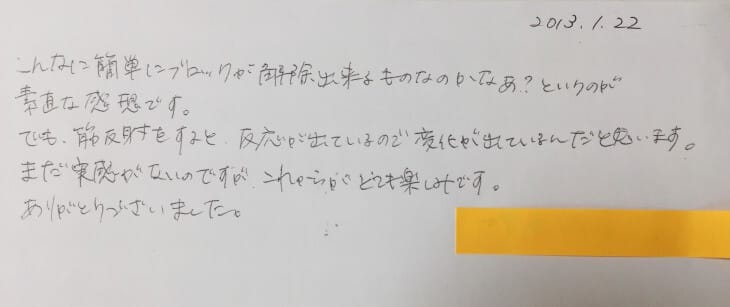 2013.1.22
こんなに簡単にブロックが解除出来るものなのかなぁ?というのが
素直な感想です。
でも、筋反射をすると、反応が出ているので変化が出ているんだと思います。
まだ実感がないのですが、これからがとても楽しみです。
ありがとうございました。